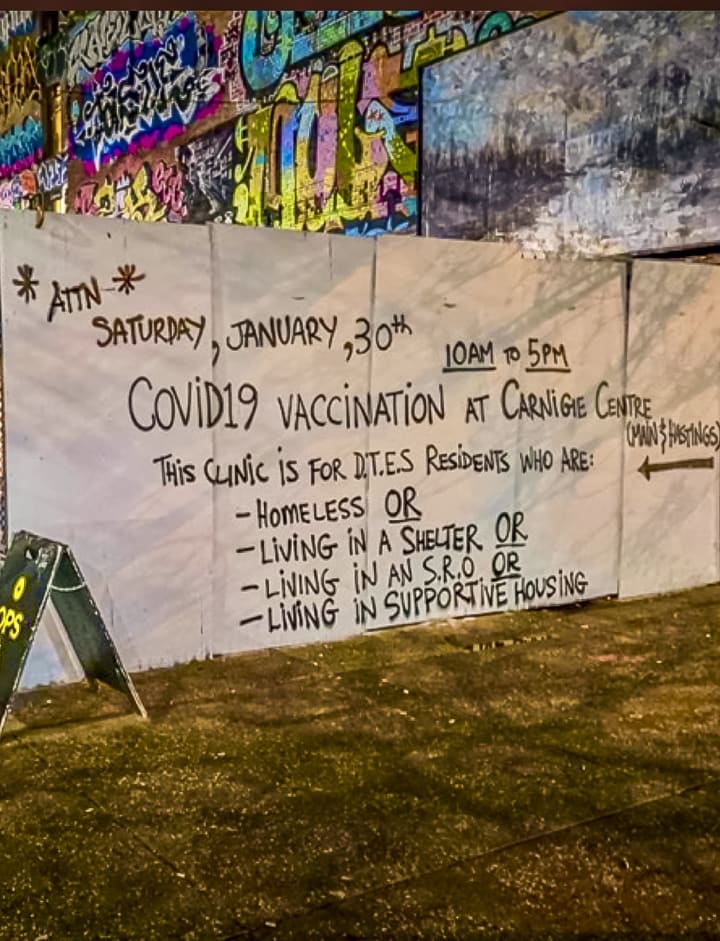 * ATTN *
SATURDAY, JANUARY, 30th
10AM TO 5PM
COVID19 VACCINATION AT CARNIGIE CENTRE
(MAIN & HASTINGS)
THIS CLINIC IS FOR D.T.E.S RESIDENTS WHO ARE:
- HOMELESS OR
- LIVING IN A SHELTER OR
- LIVING IN AN S.R.O OR
- LIVING IN SUPPORTIVE HOUSING